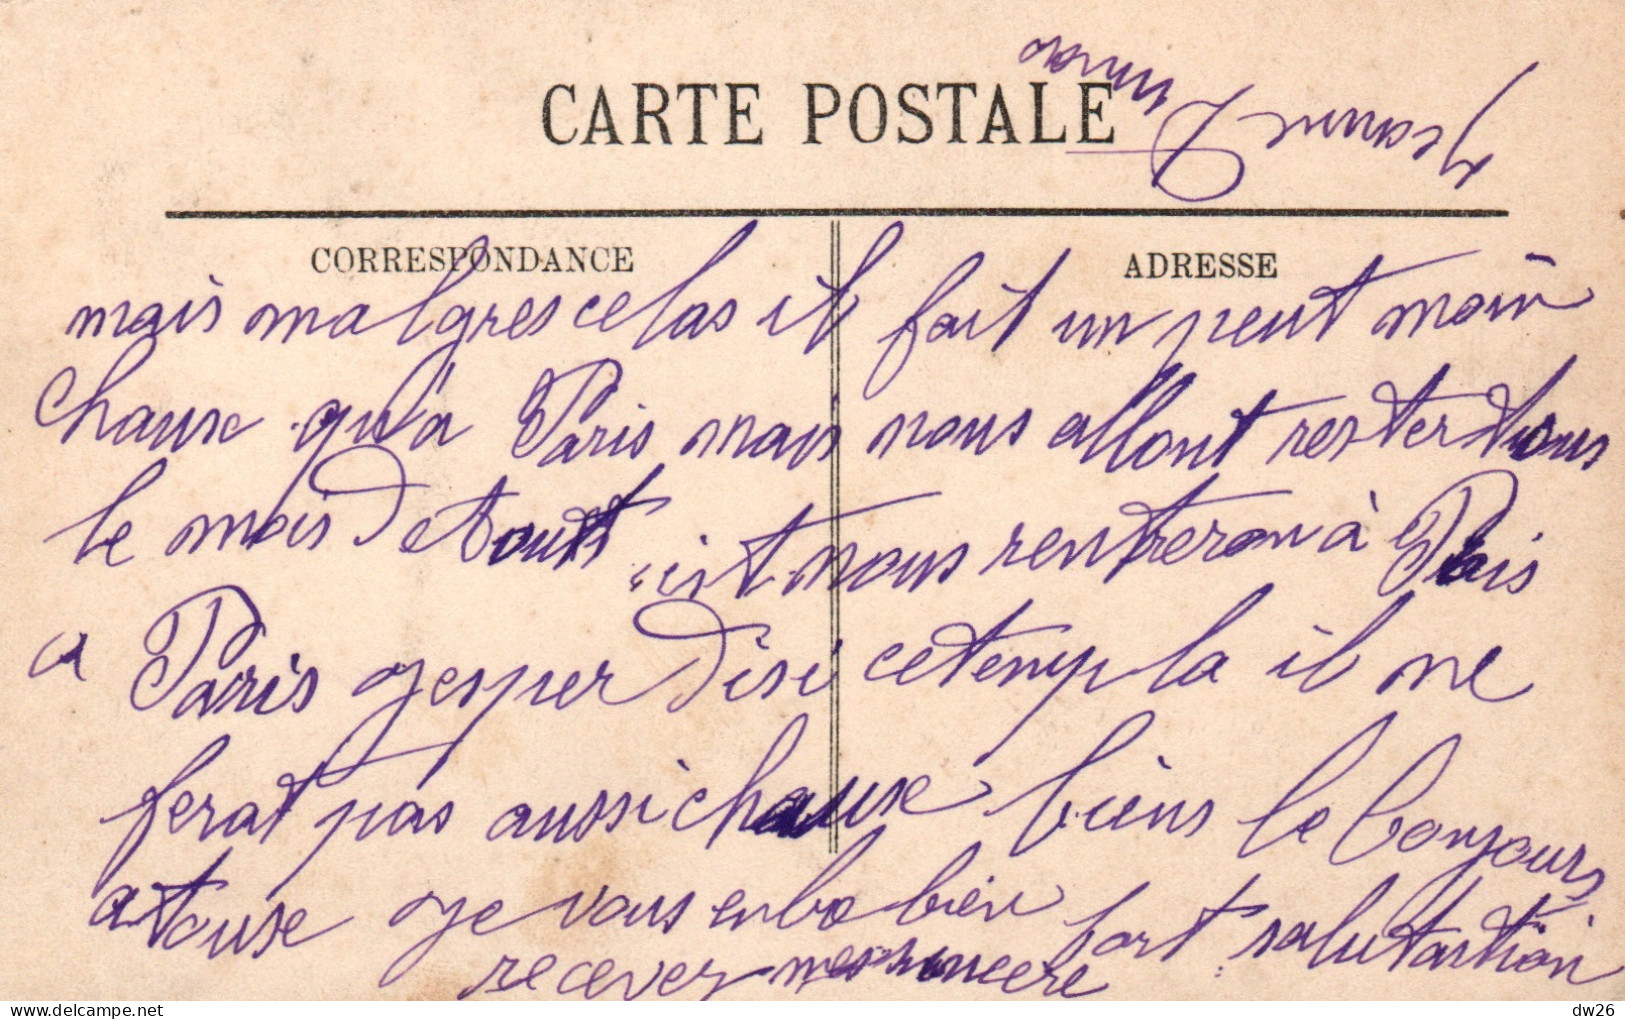 CARTE POSTALE
CORRESPONDANCE
ADRESSE
mais malgres celas il fait un peut moin
chause qu'a Paris mais nous allont rester tous
le mois detout ist nous rentreron à Paris
a Paris jesper disi cetemp la il ne
ferat pas aussi chause biens le bonjours
a touse je vous enbo bien fort salutastion
recever mes sincere
Jeanne
delcampe.net
dw26